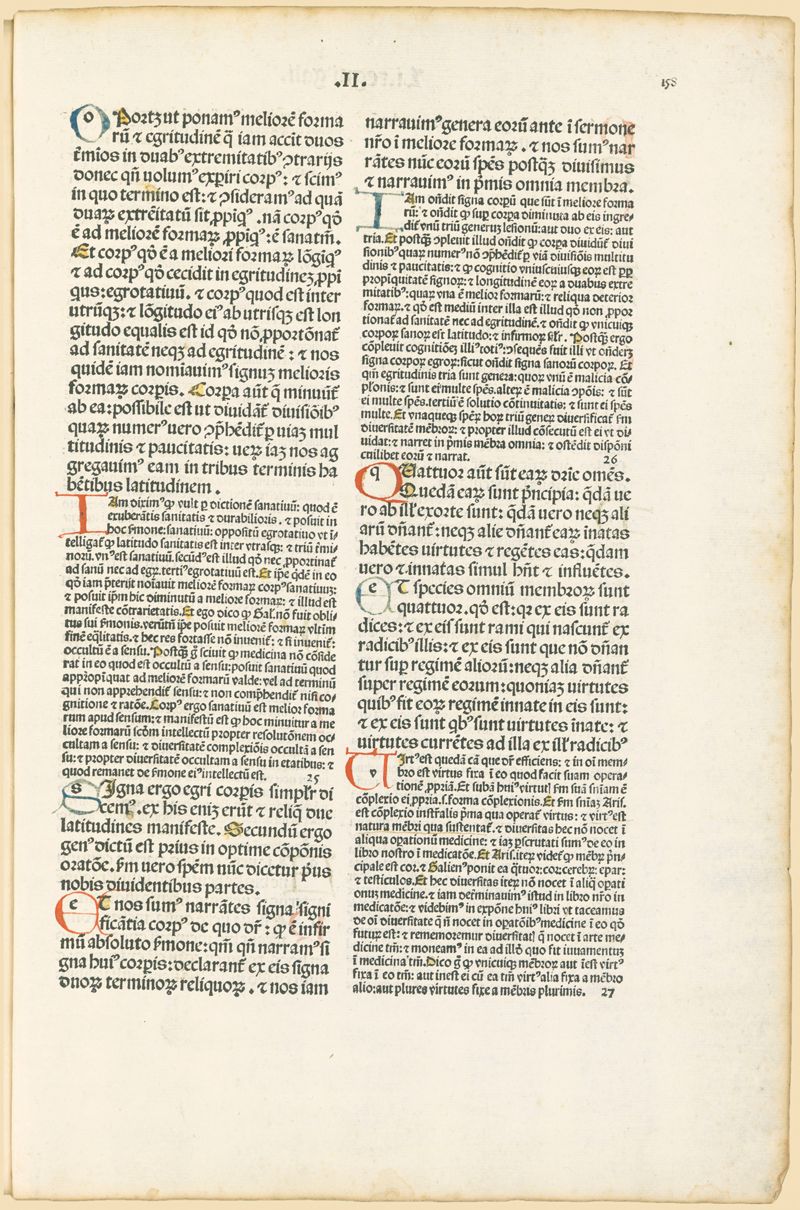 .II.
158
OPortꝫ ut ponamꝰ meliorē forma
rū ⁊ egritudinē q̄ iam accit duos
t̄mīos in duabꝰ extremitatibꝰ ꝯtrarijs
donec qn̄ uolumꝰ exꝑiri corpꝰ: ⁊ scimꝰ
in quo termino est: ⁊ ꝯsideramꝰ ad quā
duaꝝ extrēitatū sit ꝓpīqꝰ . nā corpꝰ qō
ē ad meliorē formaꝝ ꝓpīqꝰ: ē sanatm̄.
Et corpꝰ qō ē a meliori formaꝝ lōgīqꝰ
⁊ ad corpꝰ qō cecidit in egritudineꝫ ꝓpī
qus: egrotatiuū. ⁊ corpꝰ quod est inter
utrūqꝫ: ⁊ lōgitudo eiꝰ ab utrisqꝫ est lon
gitudo equalis est id qō nō ꝓportōnat̄
ad sanitatē neqꝫ ad egritudinē : ⁊ nos
quidē iam nomīauimꝰ signuꝫ melioris
formaꝝ corpīs. Corpa aūt q̄ minuūt̄
ab ea: possibile est ut diuidāt̄ diuisiōibꝰ
quaꝝ numerꝰ uero ꝯp̄hēdit̄ ꝑ uiaꝫ mul
titudinis ⁊ paucitatis: ueꝝ iaꝫ nos ag
gregauimꝰ eam in tribus terminis ha
bētibus latitudinem .
IAm diximꝰ ꝙ vult ꝑ dictionē sanatiuū: quod ē
exuberātis sanitatis ⁊ durabilioris. ⁊ posuit in
hoc s̄mone: sanatiuū: oppositū egrotatiuo vt ī-
telligat̄ ꝙ latitudo sanitatis est inter vtrasqꝫ: ⁊ triū t̄mi-
norū. vnꝰ est sanatiuū. secūdꝰ est illud qō nec ꝓportinat̄
ad sanū nec ad egꝝ. tertiꝰ egrotatiuū est. Et ip̄e q̄dē in eo
qō iam p̄terijt notauit meliorē formaꝝ corpꝰ sanatiuuꝫ:
⁊ posuit ip̄m hic diminutū a meliore formaꝝ: ⁊ illud est
manifeste cōtrarietatis. Et ego dico ꝙ Gal. nō fuit obli-
tus sui s̄monis. verūtn̄ ip̄e posuit meliorē formaꝝ vltīm
finē eq̄litatis. ⁊ hec res fortasse nō inuenit̄: ⁊ si inuenit̄:
occultū ē a sensu. Postqꝫ g̊ sciuit ꝙ medicina nō cōside
rat in eo quod est occultū a sensu: posuit sanatiuū quod
appropīquat ad meliorē formarū valde: vel ad terminū
qui non apprehendit̄ sensu: ⁊ non comp̄hendit̄ nisi co-
gnitione ⁊ ratōe. Corpꝰ ergo sanatiuū est melior forma
rum apud sensum: ⁊ manifestū est ꝙ hoc minuitur a me
liore formarū scd̄m intellectū propter resolutōnem oc-
cultam a sensu: ⁊ diuersitatē complexiōis occultā a sen
su: ⁊ propter diuersitatē occultam a sensu in etatibus: ⁊
quod remanet de s̄mone eiꝰ intellectū est. 25
SIgna ergo egri corpīs simpl̄r di
cemꝰ. ex his eniꝫ erūt ⁊ reliq̄ due
latitudines manifeste. Secundū ergo
genꝰ dictū est prius in optime cōpōnis
oratōe. s̄m uero spēm nūc dicetur p̄us
nobis diuidentibus partes.
ET nos sumꝰ narrātes signa signi
ficātia corpꝰ de quo dr̄: ꝙ ē infir
mū absoluto s̄mone: qm̄ qn̄ narramꝰ si
gna huiꝰ corpīs: declarant̄ ex eis signa
duoꝝ terminoꝝ reliquoꝝ . ⁊ nos iam
narrauimꝰ genera eorū ante ī sermone
nr̄o ī meliore formaꝝ . ⁊ nos sumꝰ nar
rātes nūc eorū spēs postqꝫ diuisimus
⁊ narrauimꝰ in p̄mis omnia membra.
IAm on̄dit signa corpū que sūt ī meliore forma
rū: ⁊ on̄dit ꝙ sup corpa diminuta ab eis ingre-
dit̄ vnū triū generuꝫ lesionū: aut duo ex eis: aut
tria. Et postqꝫ ꝯpleuit illud on̄dit ꝙ corpa diuidūt̄ diui
sionibꝰ quaꝝ numerꝰ nō ꝯp̄hēdit̄ ꝑ viā diuisiōis multitu
dinis ⁊ paucitatis: ⁊ ꝙ cognitio vniuscuiusqꝫ eoꝝ est ꝑ ꝓ
propīquitatē signoꝝ: ⁊ longitudinē eoꝝ a duabus extre
mitatibꝰ: quaꝝ vna ē melior formarū: ⁊ reliqua deterior
formaꝝ. ⁊ qō est mediū inter illa est illud qō non ꝓpor
tionat̄ ad sanitatē nec ad egritudinē. ⁊ on̄dit ꝙ vnicuiqꝫ
corpoꝝ sanoꝝ est latitudo: ⁊ infirmoꝝ sīl̄r. Postqꝫ ergo
cōpleuit cognitiōeꝫ illiꝰ totiꝰ: ꝯsequēs fuit illi vt on̄deꝝ
signa corpoꝝ egroꝝ: sicut on̄dit signa sanorū corpoꝝ. Et
qm̄ egritudinis tria sunt genera: quoꝝ vnū ē malicia cō-
pl̄onis: ⁊ sunt ei multe spēs. alteꝝ ē malicia ꝯpōis: ⁊ sūt
ei multe spēs. tertiū ē solutio cōtinuitatis: ⁊ sunt ei spēs
multe. Et vnaqueqꝫ spēꝝ hoꝝ triū generꝝ diuersificat̄ s̄m
diuersitatē mēbroꝝ: ⁊ propter illud cōsecutū est ei vt di-
uidat: ⁊ narret in p̄mis mēbra omnia: ⁊ ostēdit dispōni
cuilibet eorū ⁊ narrat. 26
QUattuor aūt sūt eaꝝ dr̄ie omēs.
Quedā eaꝝ sunt p̄ncipia: q̄dā ue
ro ab ill̄ exorte sunt: q̄dā uero neqꝫ ali
arū dn̄ant̄: neqꝫ alie dn̄ant̄ eaꝝ īnatas
habētes uirtutes ⁊ regētes eas: q̄dam
uero ⁊ innatas simul hn̄t ⁊ influētes.
ET species omniū membroꝝ sunt
quattuor. qō est: qꝛ ex eis sunt ra
dices: ⁊ ex eis sunt rami qui nascunt̄ ex
radicibꝰ illis: ⁊ ex eis sunt que nō dn̄an
tur sup regimē aliorū: neqꝫ alia dn̄ant̄
super regimē eorum: quoniaꝫ uirtutes
quibꝰ fit eoꝝ regimē innate in eis sunt:
⁊ ex eis sunt qbꝰ sunt uirtutes īnate: ⁊
uirtutes currētes ad illa ex ill̄ radicibꝰ
VIrtꝰ est quedā cā que dr̄ efficiens: ⁊ in oī mem-
bro est virtus fixa ī eo quod facit suam opera-
tionē ꝓpriā. Et subā huiꝰ virtut̄ s̄m suā sn̄iam ē
cōplexio ei ꝓpria. s. forma cōplexionis. Et s̄m sn̄iaꝫ Aris.
est cōplexio instr̄alis p̄ma qua operat̄ virtus: ⁊ virtꝰ est
natura mēbri qua sustentat̄. ⁊ diuersitas hec nō nocet ī
aliqua opationū medicine: ⁊ iaꝫ ꝑscrutati sumꝰ de eo in
libro nostro ī medicatōe. Et Aris. iteꝝ videt̄ ꝙ mēbꝝ p̄n-
cipale est cor. ⁊ Galienꝰ ponit ea q̄tuor: cor: cerebꝝ: epar:
⁊ testiculos. Et hec diuersitas iteꝝ nō nocet ī aliq̄ opati
onuꝫ medicine. ⁊ iam det̄minauimꝰ istud in libro nr̄o in
medicatōe: ⁊ videbimꝰ in expōne huiꝰ libri vt taceamus
de oī diuersitate q̄ nocet in opatōibꝰ medicine ī eo qō
futuꝝ est: ⁊ rememoremur diuersitat̄ q̄ nocet ī arte me-
dicine tm̄: ⁊ moneamꝰ in ea ad illd̄ quo fit iuuamentuꝫ
ī medicina tm̄. Dico g̊ ꝙ vnicuiqꝫ mēbroꝝ aut īest virtꝰ
fixa ī eo tm̄: aut inest ei cū ea tm̄ virtꝰ alia fixa a mēbro
alio: aut plures virtutes fixe a mēbris plurimis. 27